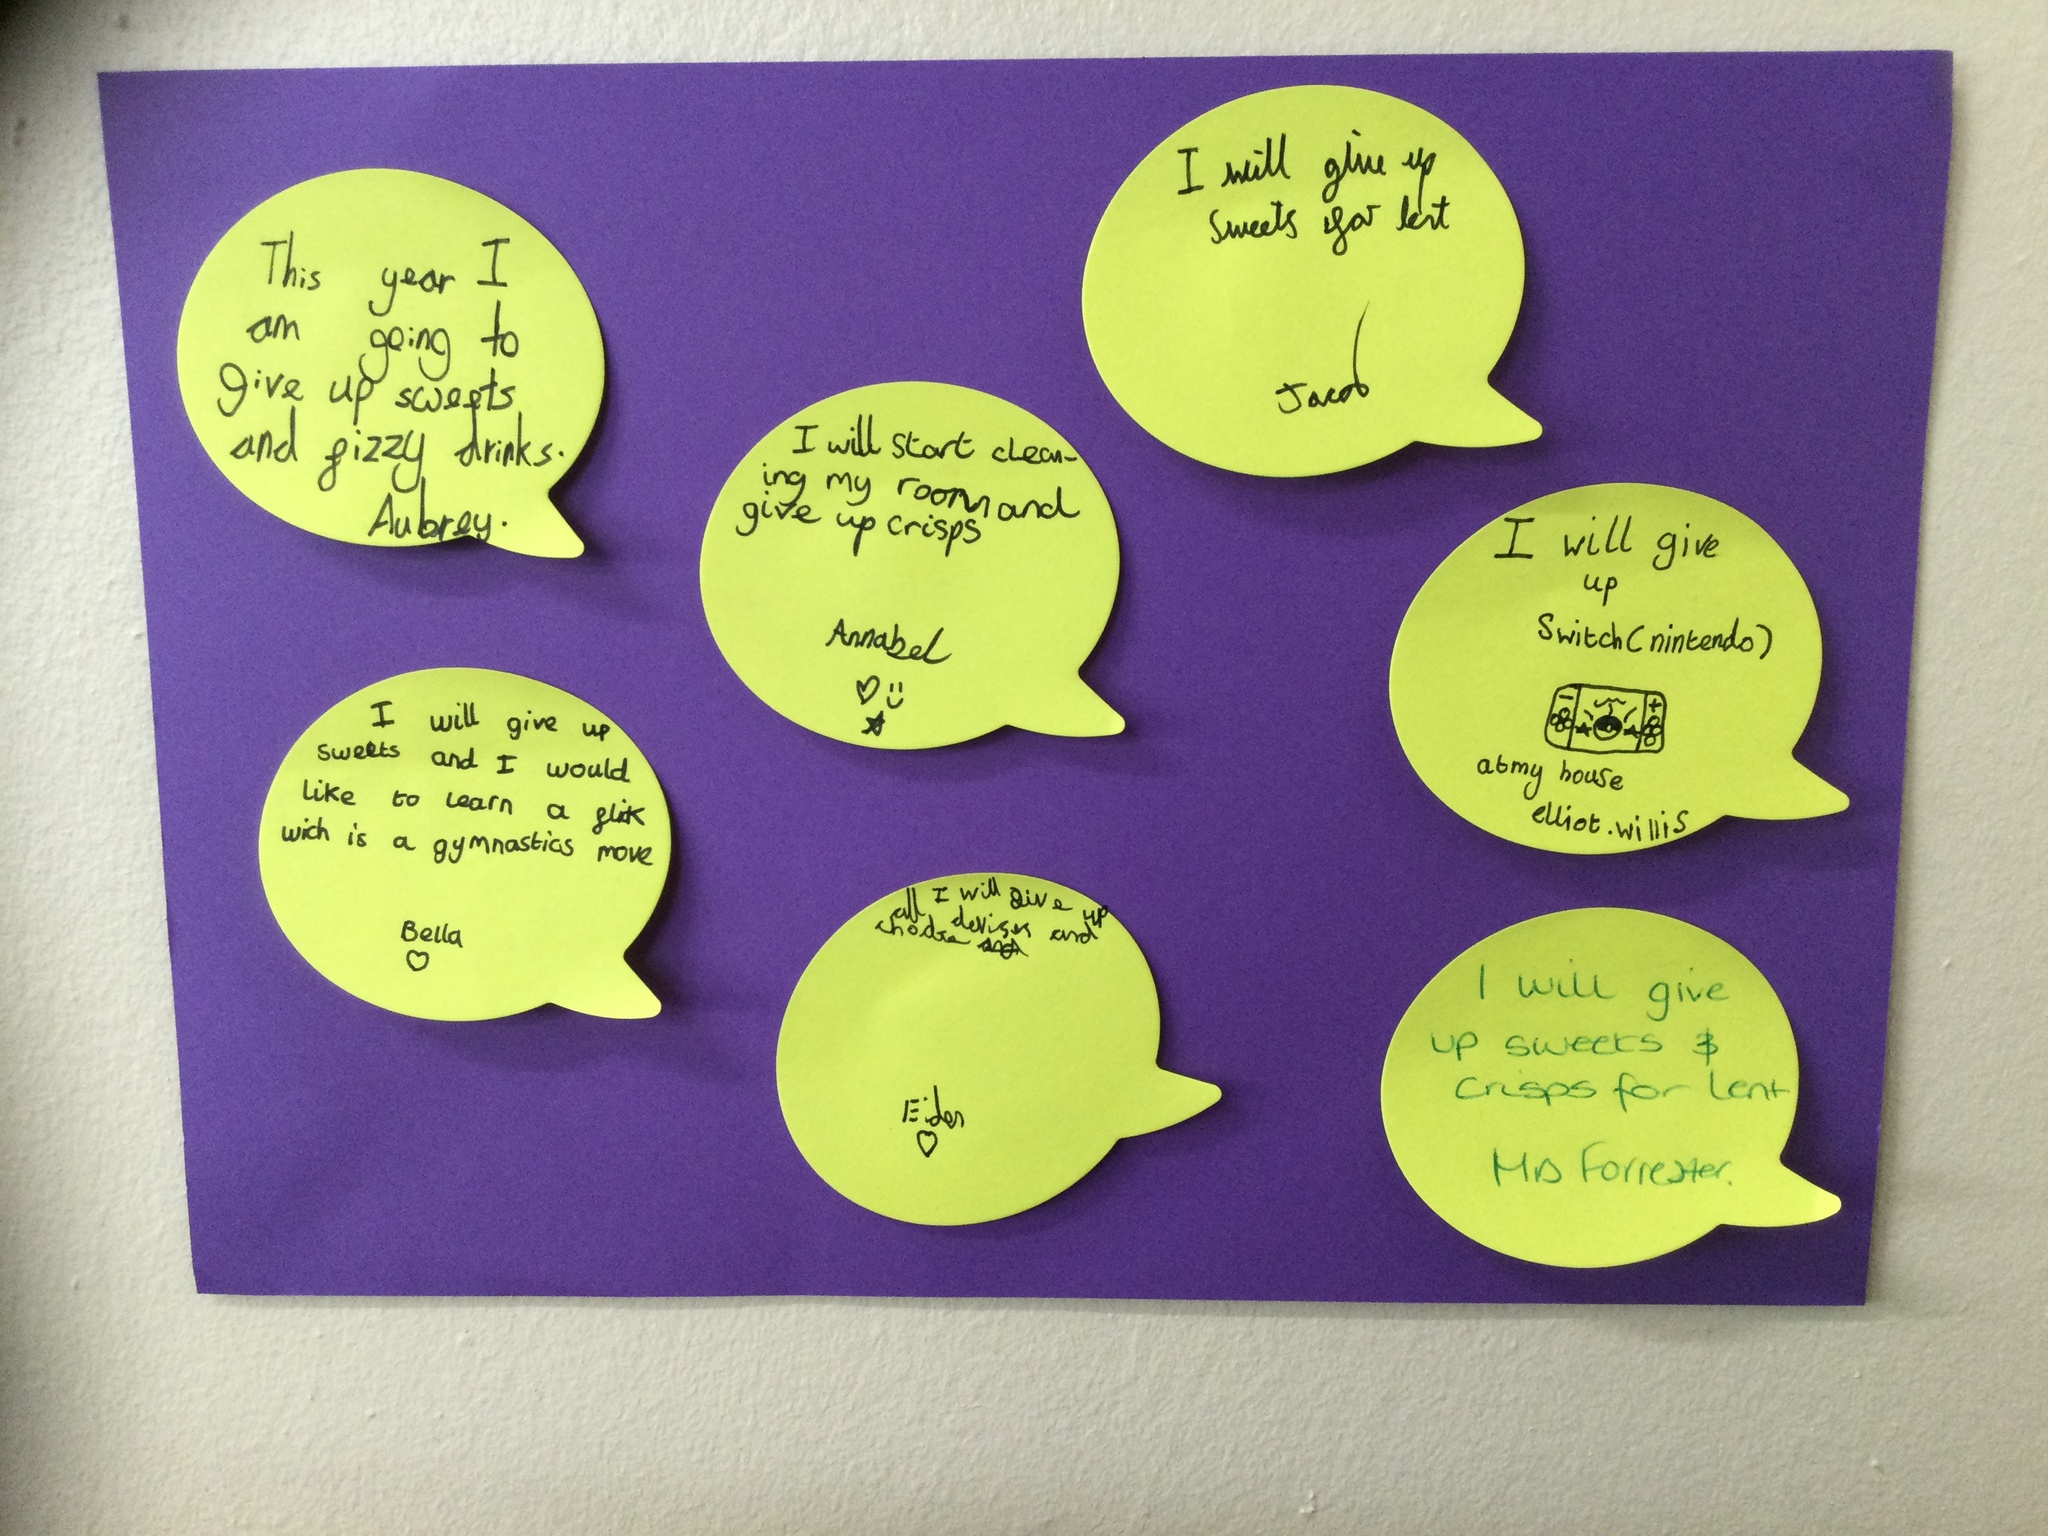 This year I
am going to
give up sweets
and fizzy drinks.
Aubrey.
I will give up
sweets for lent
Jacob
I will start clean-
ing my room and
give up crisps
Annabel
I will give
up
Switch (nintendo)
- +
at my house
elliot.willis
I will give up
sweets and I would
like to learn a flik
wich is a gymnastics move
Bella
I will give up
all devises and
Eiden
I will give
up sweets &
crisps for lent
Mrs Forrester.